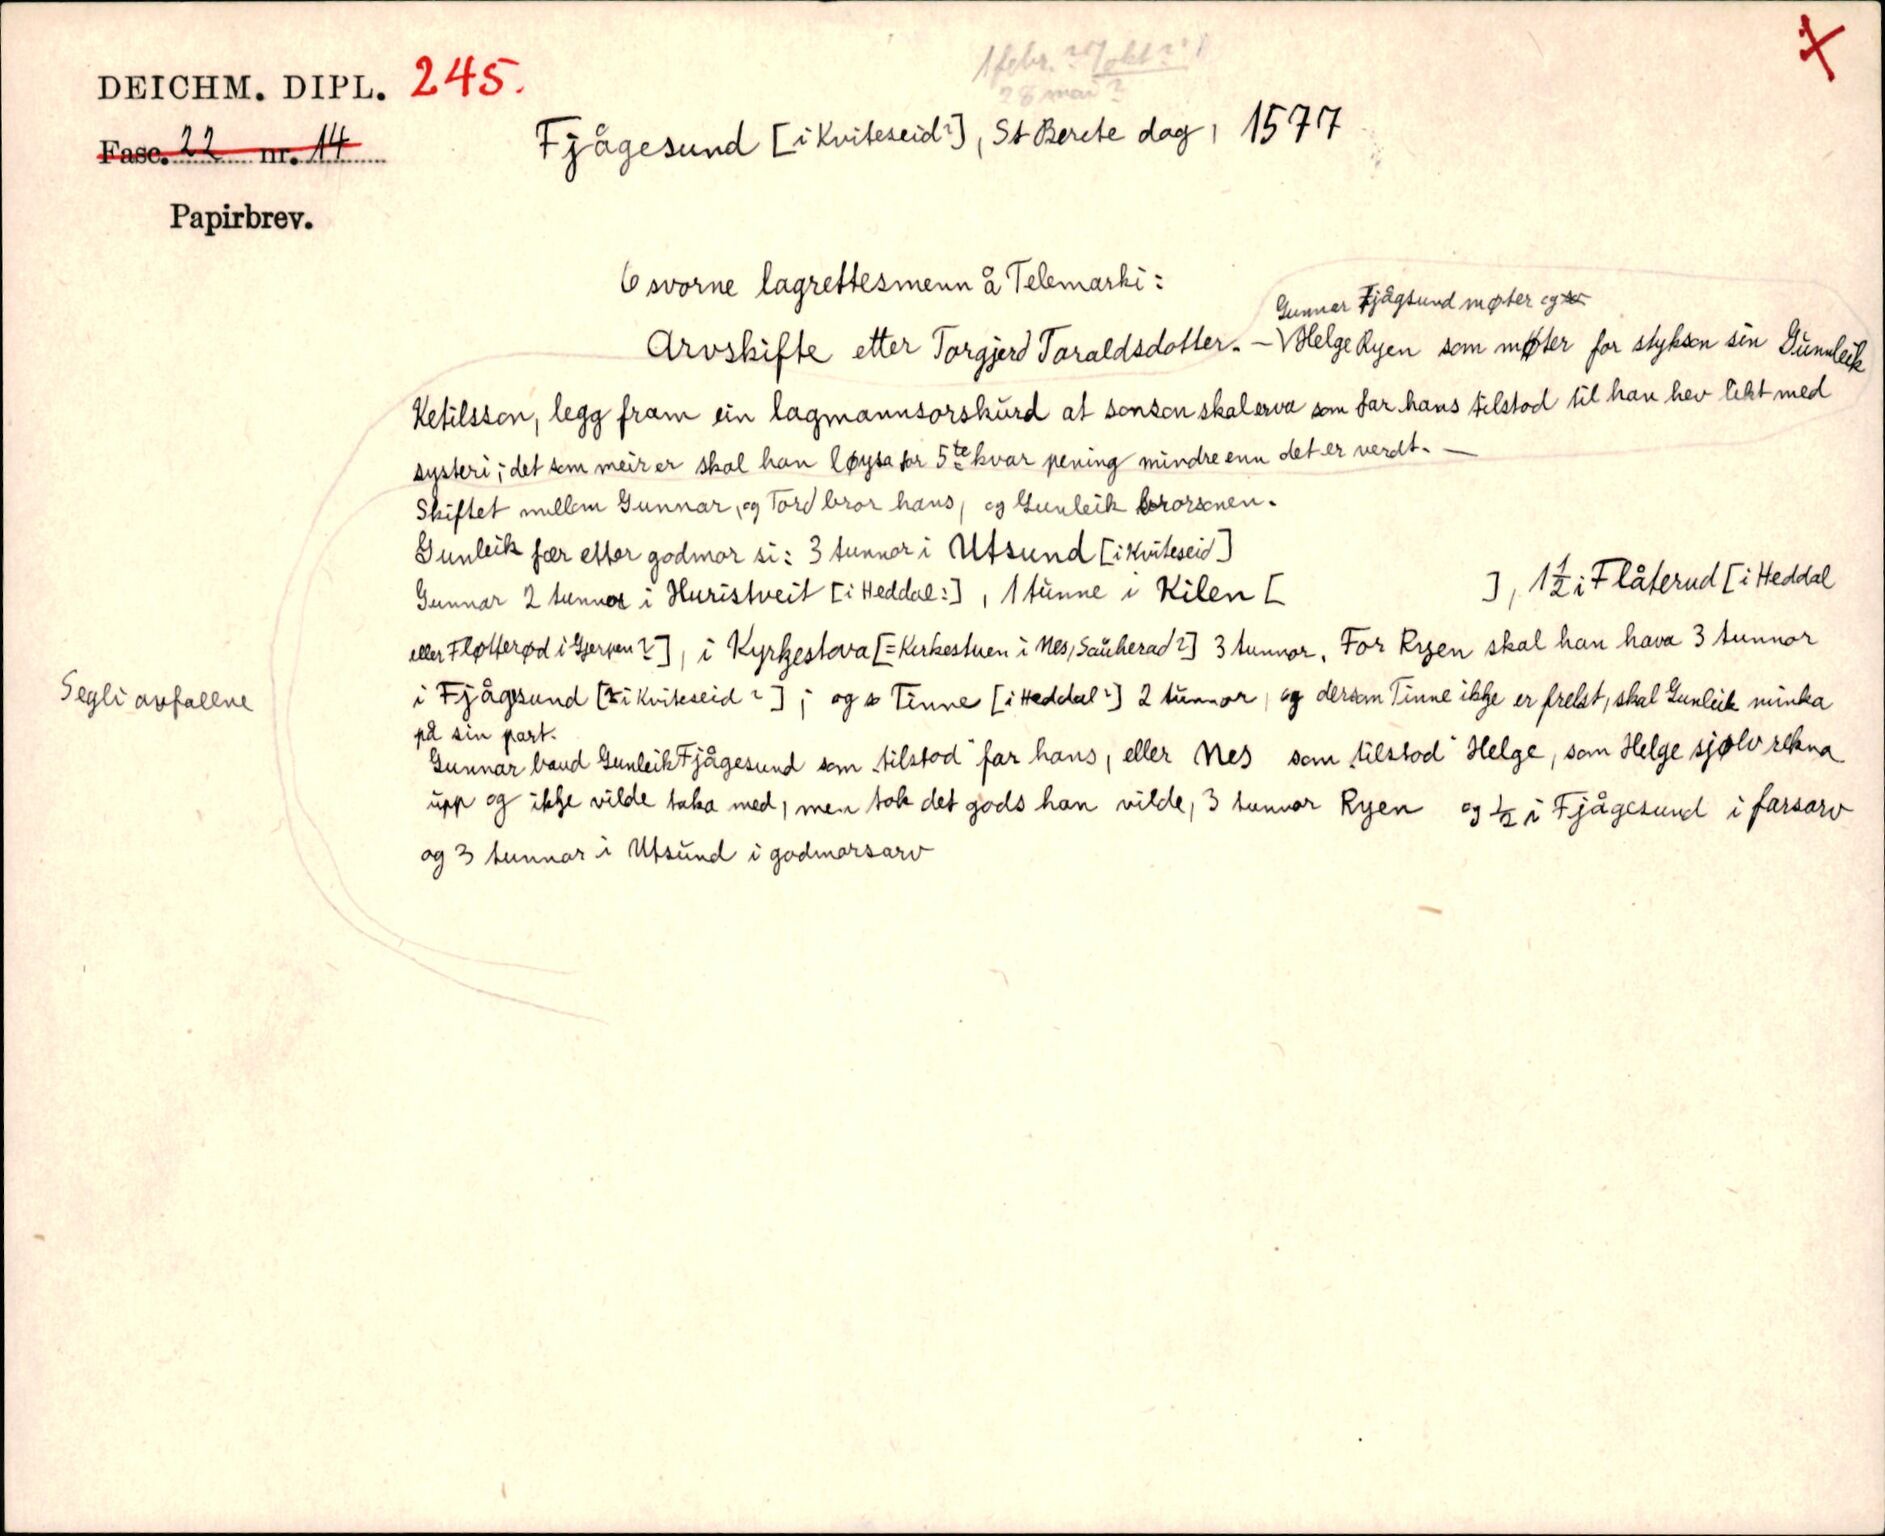 DEICHM. DIPL. 245.
1 febr. ? 7 okt ?
28 mai ?
Fasc. 22 nr. 14
Fjågesund [i Kviteseid?], St Berete dag, 1577
Papirbrev.
6 svorne lagrettesmenn å Telemarki:
Gunnar Fjågsund møter og
Arvskifte etter Torgjerd Taraldsdotter. — Helge Ryen som møter for stykson sin Gunnleik
Ketilsson, legg fram ein lagmannsorskurd at sonson skal erva som far hans tilstod til han hev likt med
systeri; det som meir er skal han løysa for 5te kvar pening mindre enn det er verdt. —
Skiftet millom Gunnar, og Tord bror hans, og Gunleik brorsonen.
Gunleik fær etter godmor si: 3 tunnor i Utsund [i Kviteseid]
Gunnar 2 tunnor i Huristveit [i Heddal:], 1 tunne i Kilen [ ], 1 1/2 i Flåterud [i Heddal
eller Fløtterød i Gjerpen?], i Kyrkjestova [= Kirkestuen i Nes, Sauherad?] 3 tunnor. For Ryen skal han hava 3 tunnor
i Fjågsund [i Kviteseid ?]; og Tinne [i Heddal?] 2 tunnor, og dersom Tinne ikkje er frelst, skal Gunleik minka
på sin part.
Segli avfallne
Gunnar baud Gunleik Fjågesund som "tilstod" far hans, eller Nes som "tilstod" Helge, som Helge sjølv rekna
upp og ikkje vilde taka med, men tok det gods han vilde, 3 tunnor Ryen og 1/2 i Fjågesund i farsarv
og 3 tunnor i Utsund i godmorsarv